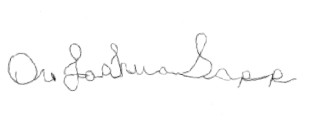 Dr. Joshua Sapp